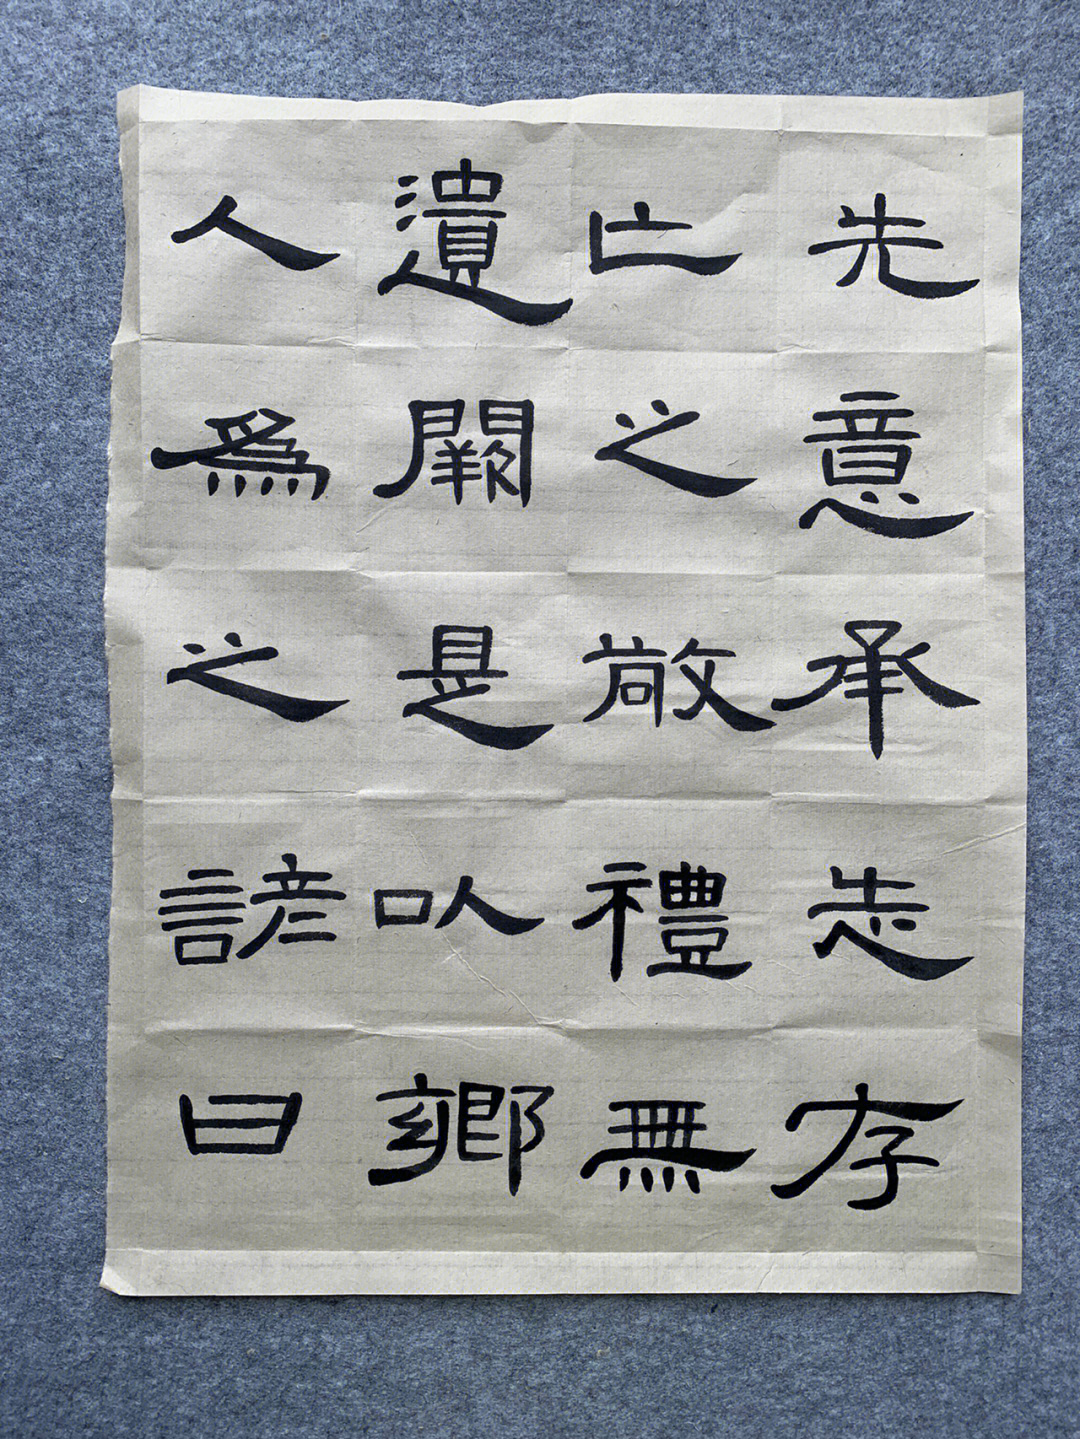 先意承志存
亡之敬禮無
遺闕是以鄉
人爲之諺曰